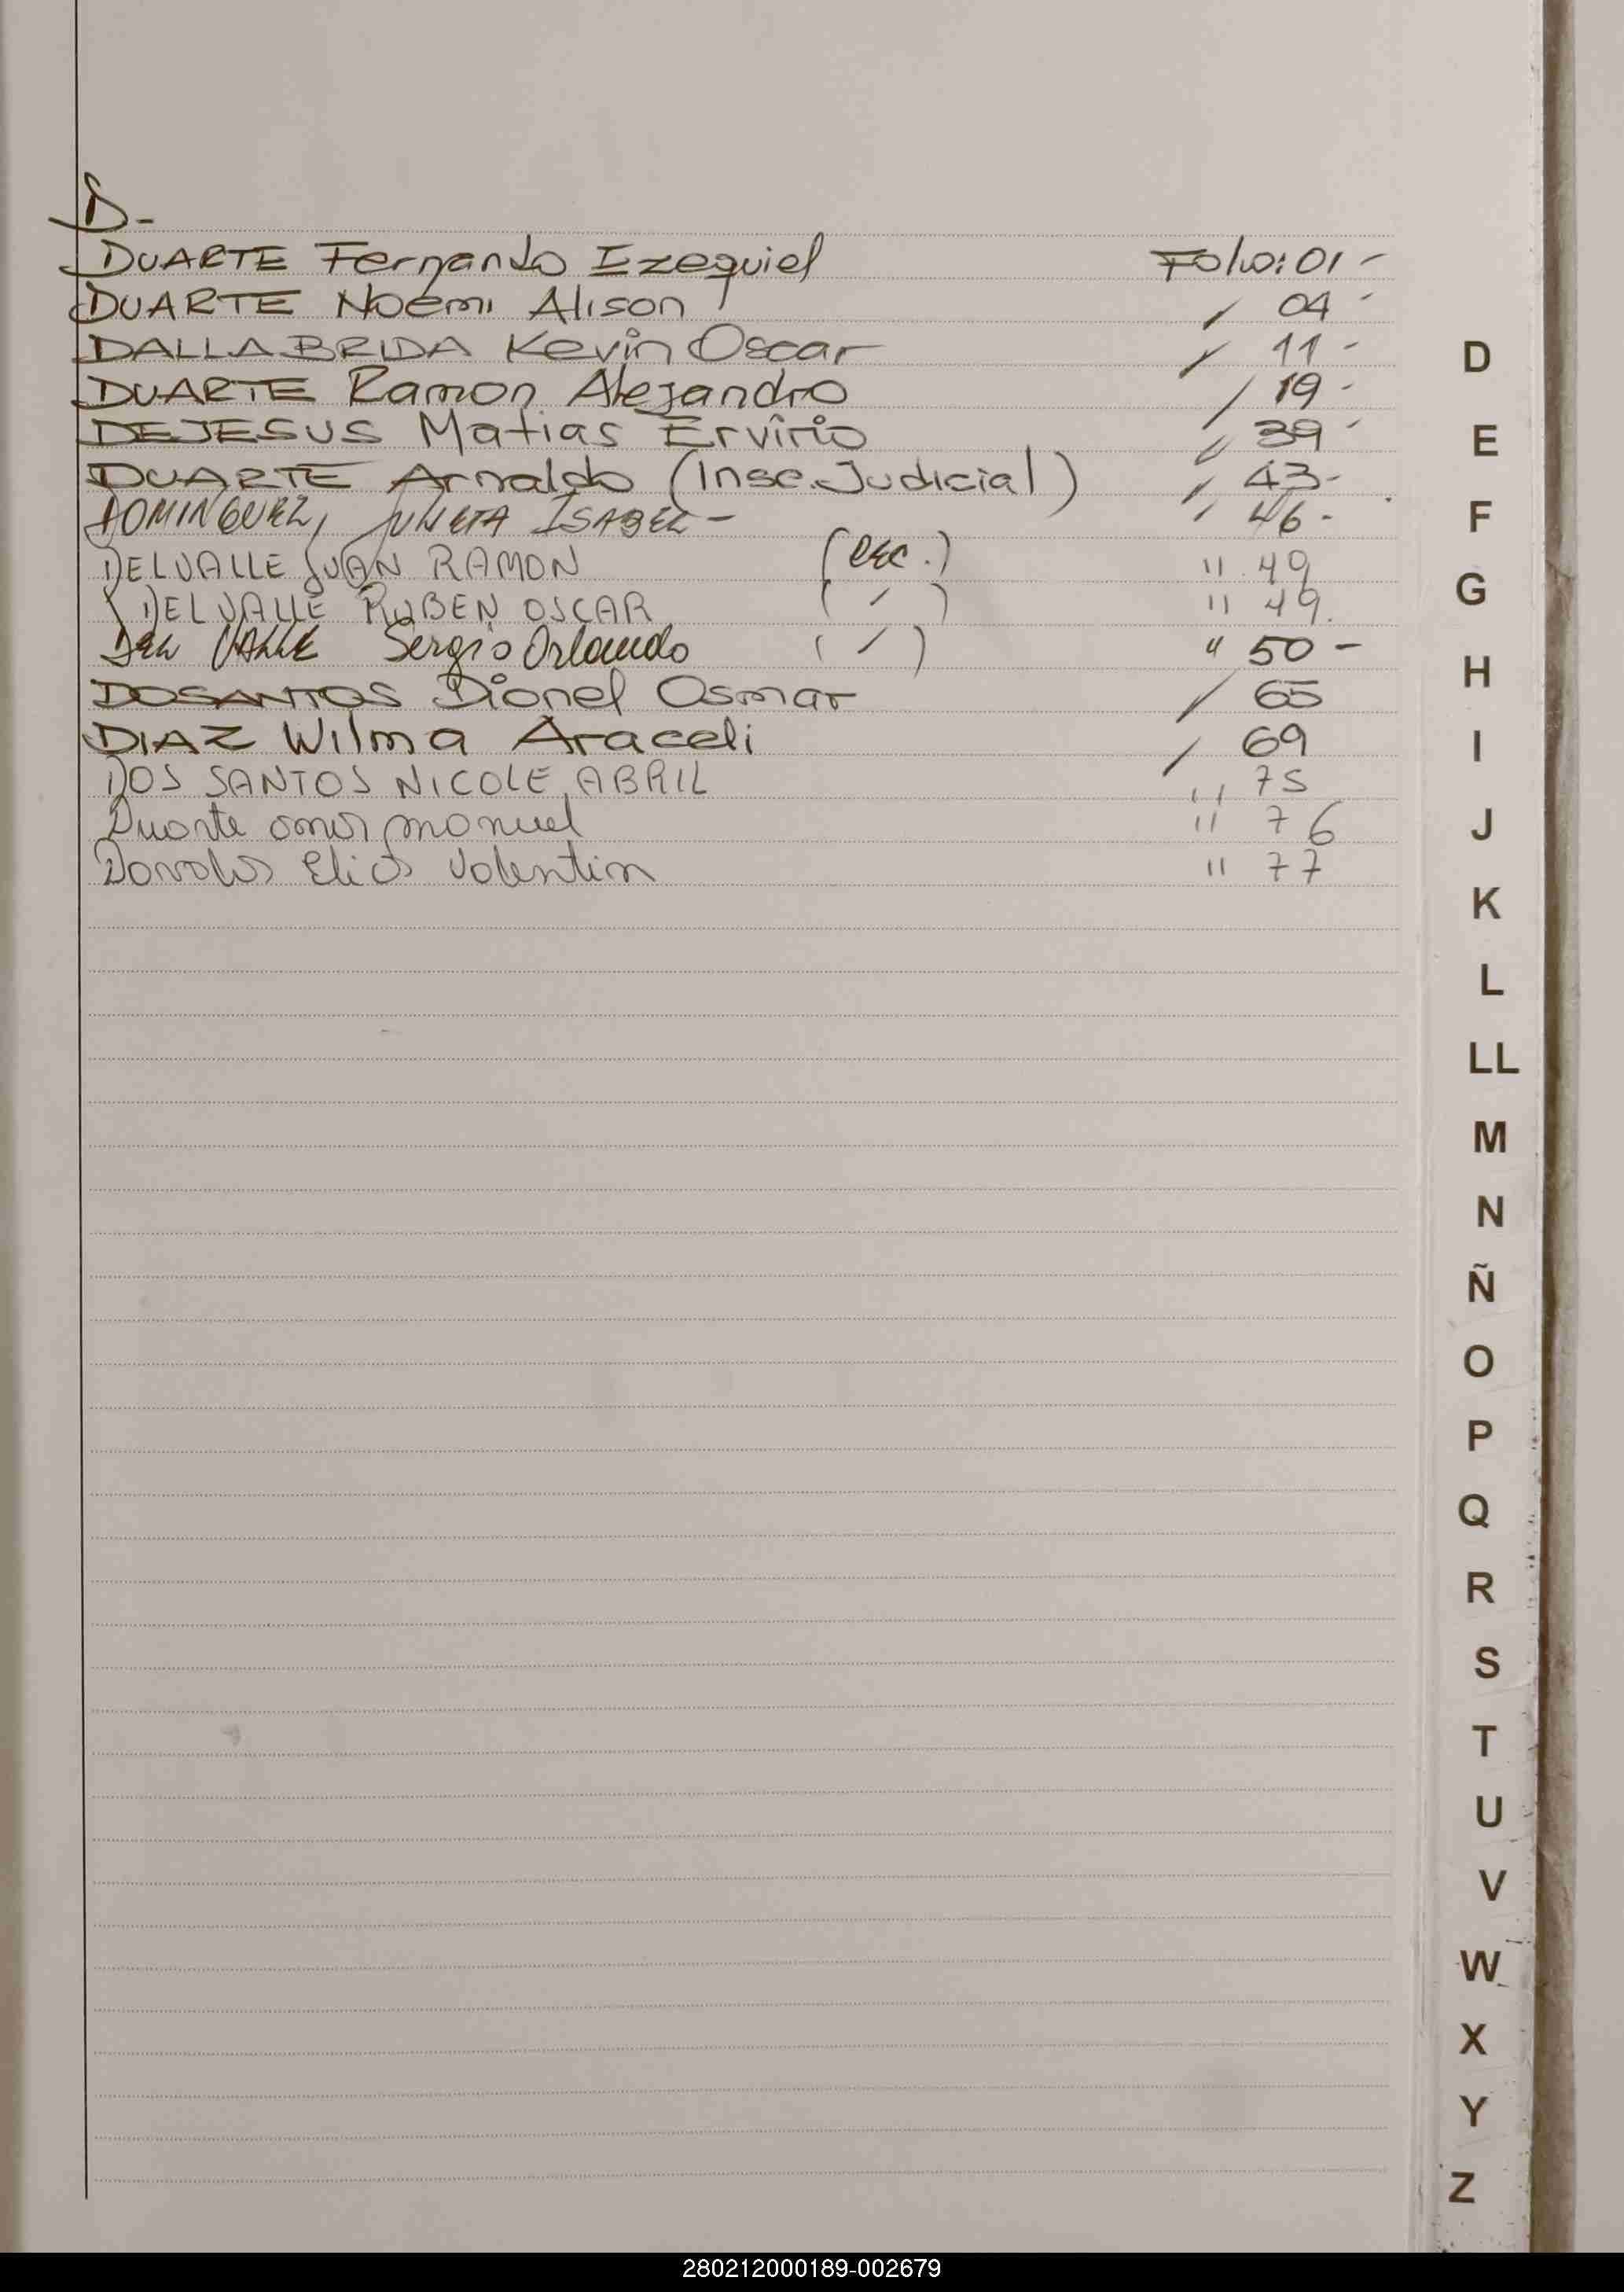 D-
DUARTE Fernando Ezequiel Folio: 01 -
DUARTE Noemi Alison / 04 -
DALLABRIDA Kevin Oscar / 11 -
DUARTE Ramon Alejandro / 19 -
DEJESUS Matias Ervirio / 39 -
DUARTE Arnaldo (Insc. Judicial) / 43 -
DOMINGUEZ, JULIETA ISABEL - / 46 -
DELVALLE JUAN RAMON (rec.) " 49
DELVALLE RUBEN OSCAR ( / ) " 49.
DEL VALLE Sergio Orlando ( / ) " 50 -
DOSANTOS Dionel Osmar / 65
DIAZ Wilma Araceli / 69
DOS SANTOS NICOLE ABRIL " 75
Duarte omar manuel " 76
Elias Valentin " 77
D
E
F
G
H
I
J
K
L
LL
M
N
Ñ
O
P
Q
R
S
T
U
V
W
X
Y
Z
280212000189-002679